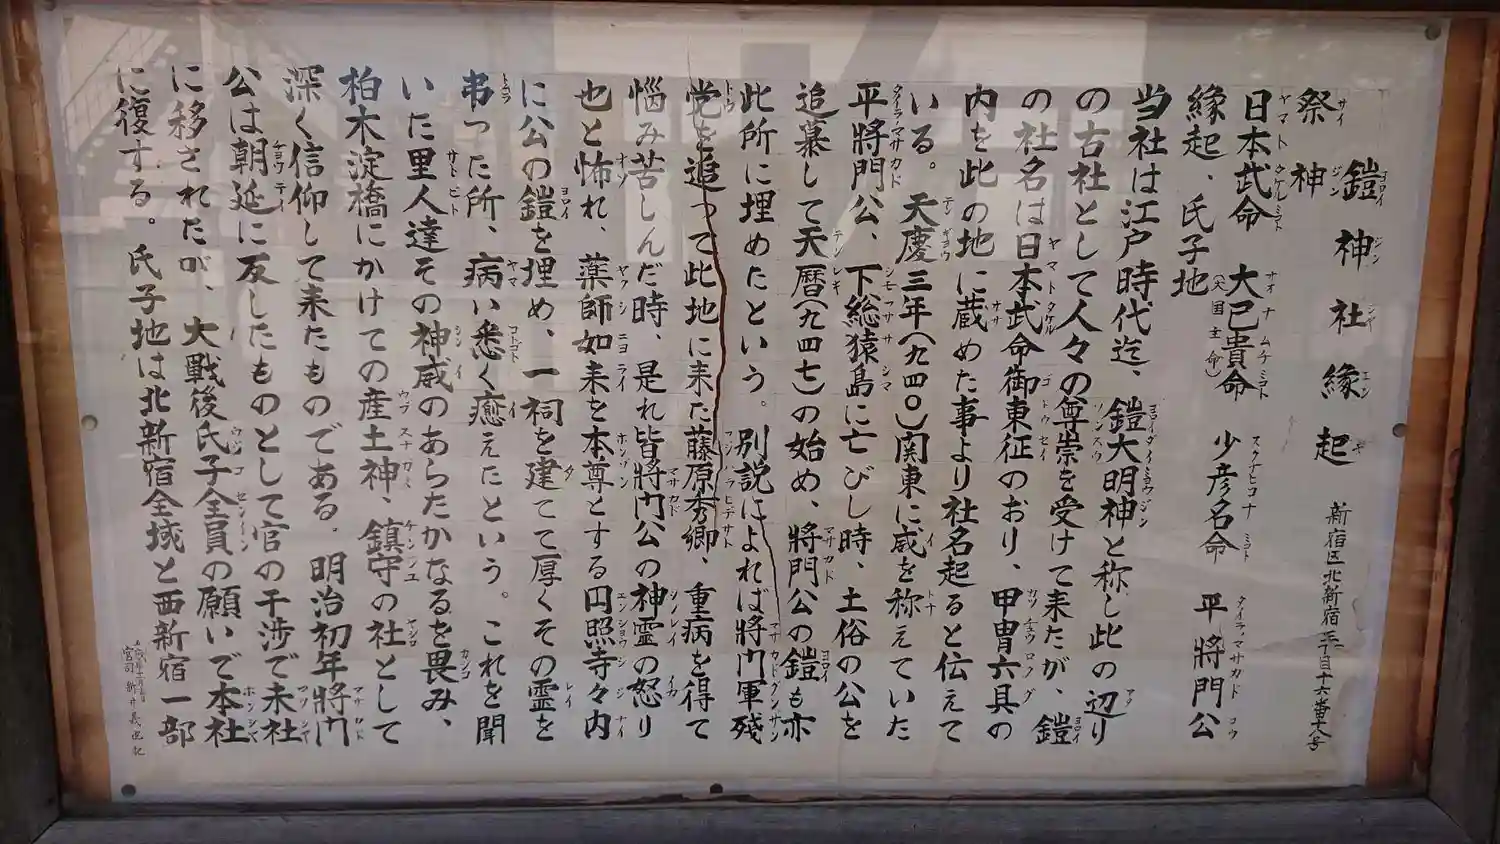 鎧神社縁起
新宿区北新宿三丁目十六番十八号
祭神
日本武命 大己貴命(大国主命) 少彦名命 平將門公
緣起、氏子地
当社は江戸時代迄、鎧大明神と称し此の辺り
の古社として人々の尊崇を受けて来たが、鎧
の社名は日本武命御東征のおり、甲冑六具の
内を此の地に蔵めた事より社名起ると伝えて
いる。天慶三年(九四〇)関東に威を称えていた
平將門公、下総猿島に亡びし時、土俗の公を
追慕して天暦(九四七)の始め、將門公の鎧も亦
此所に埋めたという。別説によれば將門軍殘
党を追って此地に来た藤原秀郷、重病を得て
悩み苦しんだ時、是れ皆將門公の神霊の怒り
也と怖れ、薬師如来を本尊とする円照寺々内
に公の鎧を埋め、一祠を建てて厚くその霊を
弔った所、病い悉く癒えたという。これを聞
いた里人達その神威のあらたかなるを畏み、
柏木淀橋にかけての産土神、鎮守の社として
深く信仰して来たものである。明治初年將門
公は朝延に反したものとして官の干渉で末社
に移されたが、大戰後氏子全員の願いで本社
に復する。氏子地は北新宿全域と西新宿一部
宮司